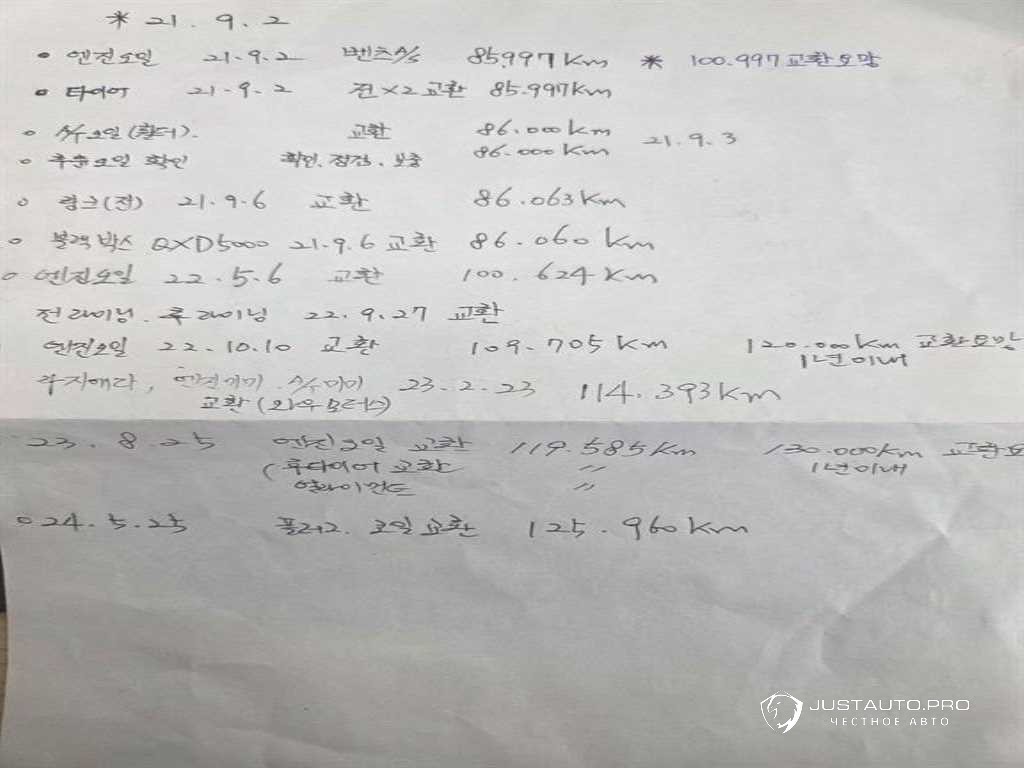 * 21. 9. 2
• 엔진오일 21.9.2 벤츠A/s 85.997Km * 100.997 교환요망
• 타이어 21.9.2 전×2 교환 85.997Km
○ A/T오일(휠더). 교환 86.000Km 21.9.3
○ 확인 확인.점검.보충 86.000Km
○ (전) 21.9.6 교환 86.063Km
○ 블랙박스 QXD5000 21.9.6 교환 86.060 Km
○ 엔진오일 22.5.6 교환 100.624Km
전라이닝. 후라이닝 22.9.27 교환
엔진오일 22.10.10 교환 109.705Km 120.000Km 교환요망
1년이내
엔진미미 미미 23.2.23 114.393Km
교환(와우모터스)
23.8.25 엔진오일 교환 119.585Km 130.000Km 교환요
(후타이어 교환 〃 1년이내
얼라이먼트 〃
○ 24.5.25 플러그. 코일교환 125.960Km
JUSTAUTO.PRO
ЧЕСТНОЕ АВТО